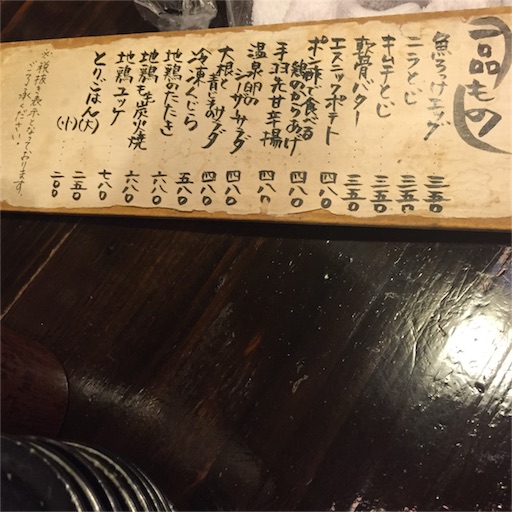 一品もの
魚ろっけエッグ 三五〇
ニラとじ 三五〇
キムチとじ 三五〇
軟骨バター 三五〇
エスニックポテト 四八〇
ポン酢で食べる
鶏のからあげ 四八〇
手羽先甘辛揚 四八〇
温泉卵の
シーザーサラダ 四八〇
大根と
青じそのサラダ 四八〇
冷凍くじら 五八〇
地鶏のたたき 六八〇
地鶏もも炭火焼 六八〇
地鶏ユッケ 七八〇
とりごはん (大) 二五〇
(小) 二〇〇
※税抜き表示となっております。
ご了承ください。